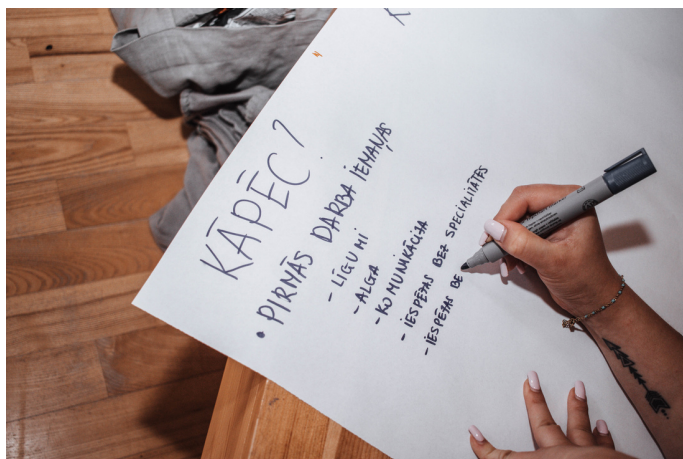 KĀPĒC?
• PIRNĀS DARBA IEMAŅAS
- LĪGUMI
- ALGA
- KOMUNIKĀCIJA
- IESPĒJAS BEZ SPECIALITĀTES
- IESPĒJAS BE